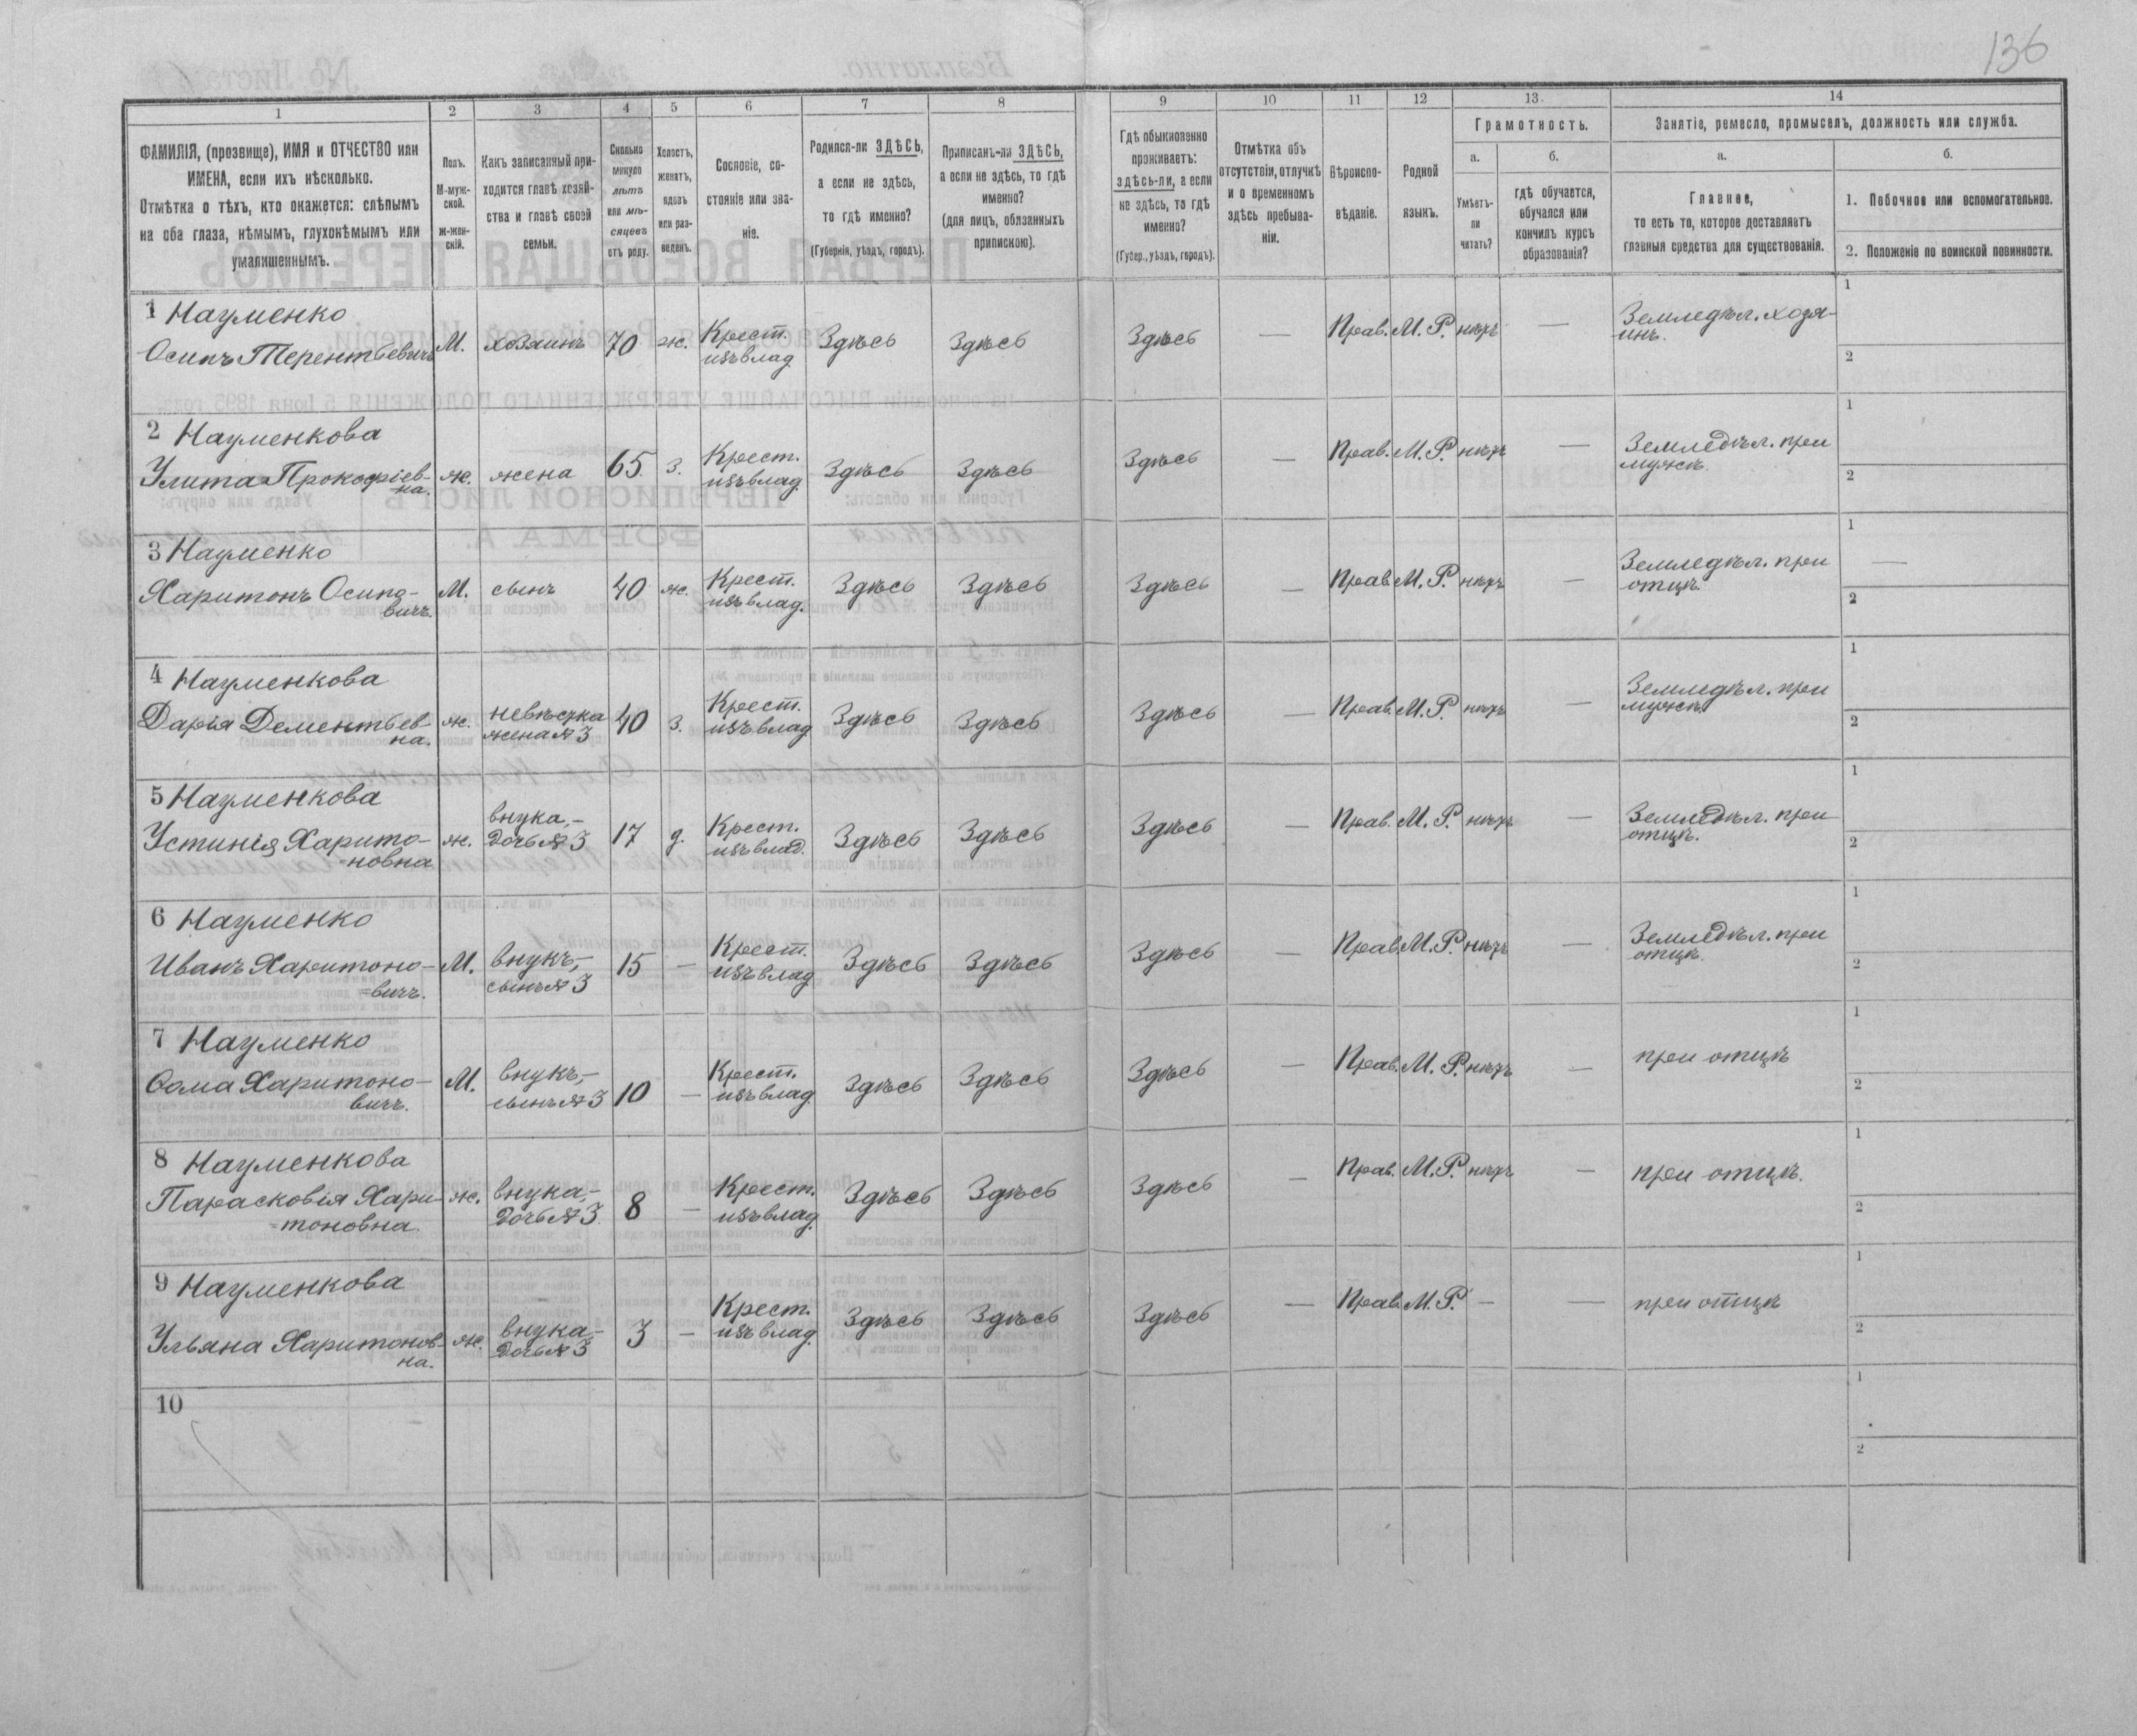 136
1
ФАМИЛІЯ, (прозвище), ИМЯ и ОТЧЕСТВО или
ИМЕНА, если ихъ нѣсколько.
Отмѣтка о тѣхъ, кто окажется: слѣпымъ
на оба глаза, нѣмымъ, глухонѣмымъ или
умалишеннымъ.
2
Полъ.
М-муж-
ской.
ж-жен-
скій.
3
Какъ записанный при-
ходится главѣ хозяй-
ства и главѣ своей
семьи.
4
Сколько
минуло
лѣтъ
или мѣ-
сяцевъ
отъ роду.
5
Холостъ,
женатъ,
вдовъ
или раз-
веденъ.
6
Сословіе, со-
стояніе или зва-
ніе.
7
Родился-ли ЗДѢСЬ,
а если не здѣсь,
то гдѣ именно?
(Губернія, уѣздъ, городъ).
8
Приписанъ-ли ЗДѢСЬ,
а если не здѣсь, то гдѣ
именно?
(для лицъ, обязанныхъ
припискою).
9
Гдѣ обыкновенно
проживаетъ:
здѣсь-ли, а если
не здѣсь, то гдѣ
именно?
(Губер., уѣздъ, городъ).
10
Отмѣтка объ
отсутствіи, отлучкѣ
и о временномъ
здѣсь пребыва-
ніи.
11
Вѣроиспо-
вѣданіе.
12
Родной
языкъ.
13.
Грамотность.
а.
Умѣетъ-
ли
читать?
б.
гдѣ обучается,
обучался или
кончилъ курсъ
образованія?
14
Занятіе, ремесло, промыселъ, должность или служба.
а.
Главное,
то есть то, которое доставляетъ
главныя средства для существованія.
б.
1. Побочное или вспомогательное.
2. Положеніе по воинской повинности.
1 Науменко
Осипъ Терентьевичъ
М.
хозяинъ
70
ж.
Крест.
изъ влад.
Здѣсь
Здѣсь
Здѣсь
—
Прав.
М. Р.
нѣтъ
—
Земледѣл. хозя-
инъ.
1
2
2 Науменкова
Улита Прокофіев-
на.
ж.
жена
65
З.
Крест.
изъ влад.
Здѣсь
Здѣсь
Здѣсь
—
Прав.
М. Р.
нѣтъ
—
Земледѣл. при
мужѣ.
1
2
3 Науменко
Харитонъ Осипо-
вичъ.
М.
сынъ
40
ж.
Крест.
изъ влад.
Здѣсь
Здѣсь
Здѣсь
—
Прав.
М. Р.
нѣтъ
—
Земледѣл. при
отцѣ.
1
—
2
4 Науменкова
Дарія Дементьев-
на.
ж.
невѣстка
жена № 3
40
З.
Крест.
изъ влад.
Здѣсь
Здѣсь
Здѣсь
—
Прав.
М. Р.
нѣтъ
—
Земледѣл. при
мужѣ
1
2
5 Науменкова
Устинія Харито-
=новна
ж.
внука,-
дочь № 3
17
д.
Крест.
изъ влад.
Здѣсь
Здѣсь
Здѣсь
—
Прав.
М. Р.
нѣтъ
—
Земледѣл. при
отцѣ.
1
2
6 Науменко
Иванъ Харитоно-
=вичъ.
М.
внукъ,-
сынъ № 3
15
—
Крест.
изъ влад.
Здѣсь
Здѣсь
Здѣсь
—
Прав.
М. Р.
нѣтъ
—
Земледѣл. при
отцѣ.
1
2
7 Науменко
Ѳома Харитоно-
вичъ.
М.
внукъ,-
сынъ № 3
10
—
Крест.
изъ влад.
Здѣсь
Здѣсь
Здѣсь
—
Прав.
М. Р.
нѣтъ
—
при отцѣ
1
2
8 Науменкова
Парасковія Хари-
=тоновна.
ж.
внука,-
дочь № 3.
8
—
Крест.
изъ влад.
Здѣсь
Здѣсь
Здѣсь
—
Прав.
М. Р.
нѣтъ
—
при отцѣ.
1
2
9 Науменкова
Ульяна Харитонов-
на.
ж.
внука,-
дочь № 3
3
—
Крест.
изъ влад.
Здѣсь
Здѣсь
Здѣсь
—
Прав.
М. Р.
—
—
при отцѣ
1
2
10
1
2